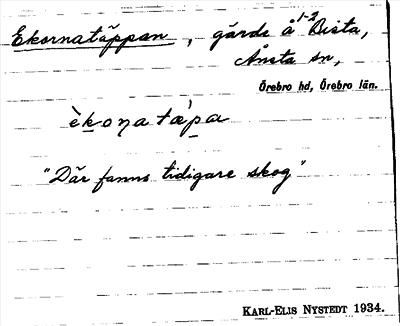 Ekornatäppan, gärde å 1-2 Bista,
Ånsta sn,
Örebro hd, Örebro län.
èkoɳatæ̀pa
"Där fanns tidigare skog"
KARL-ELIS NYSTEDT 1934.